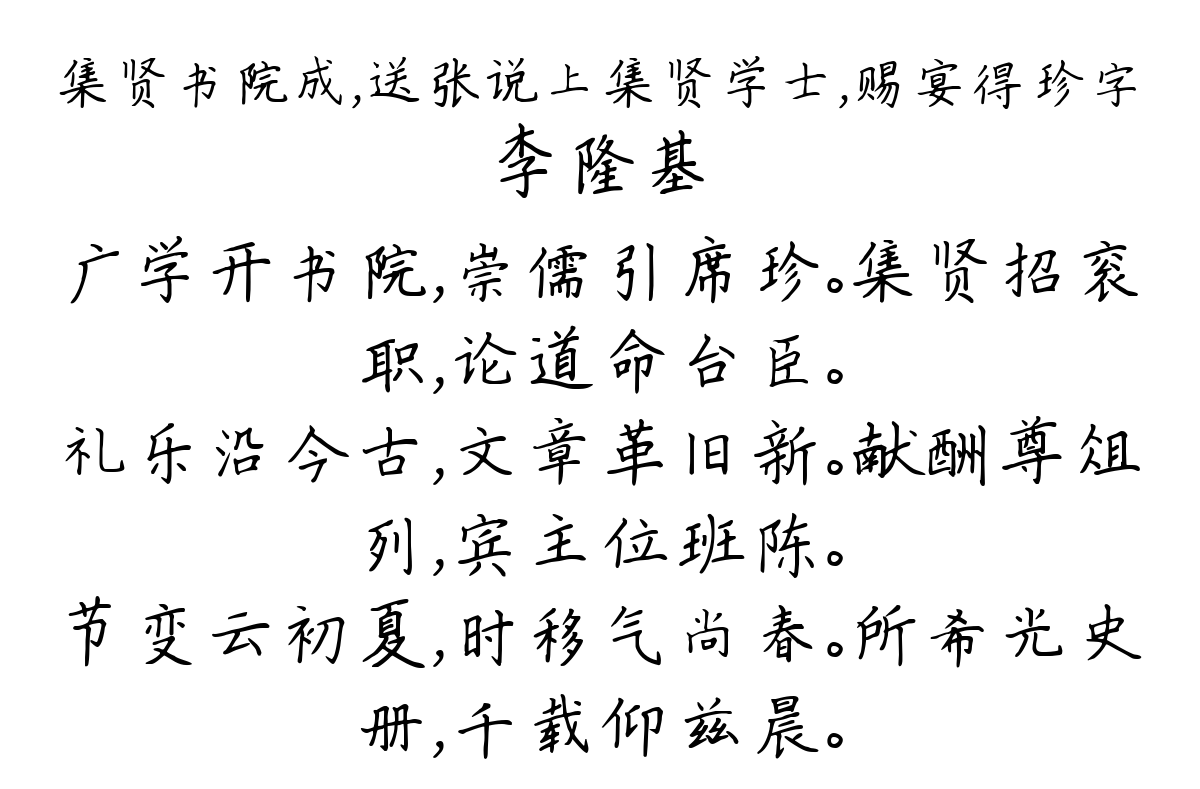 集贤书院成,送张说上集贤学士,赐宴得珍字
李隆基
广学开书院,崇儒引席珍。集贤招衮
职,论道命台臣。
礼乐沿今古,文章革旧新。献酬尊俎
列,宾主位班陈。
节变云初夏,时移气尚春。所希光史
册,千载仰兹晨。